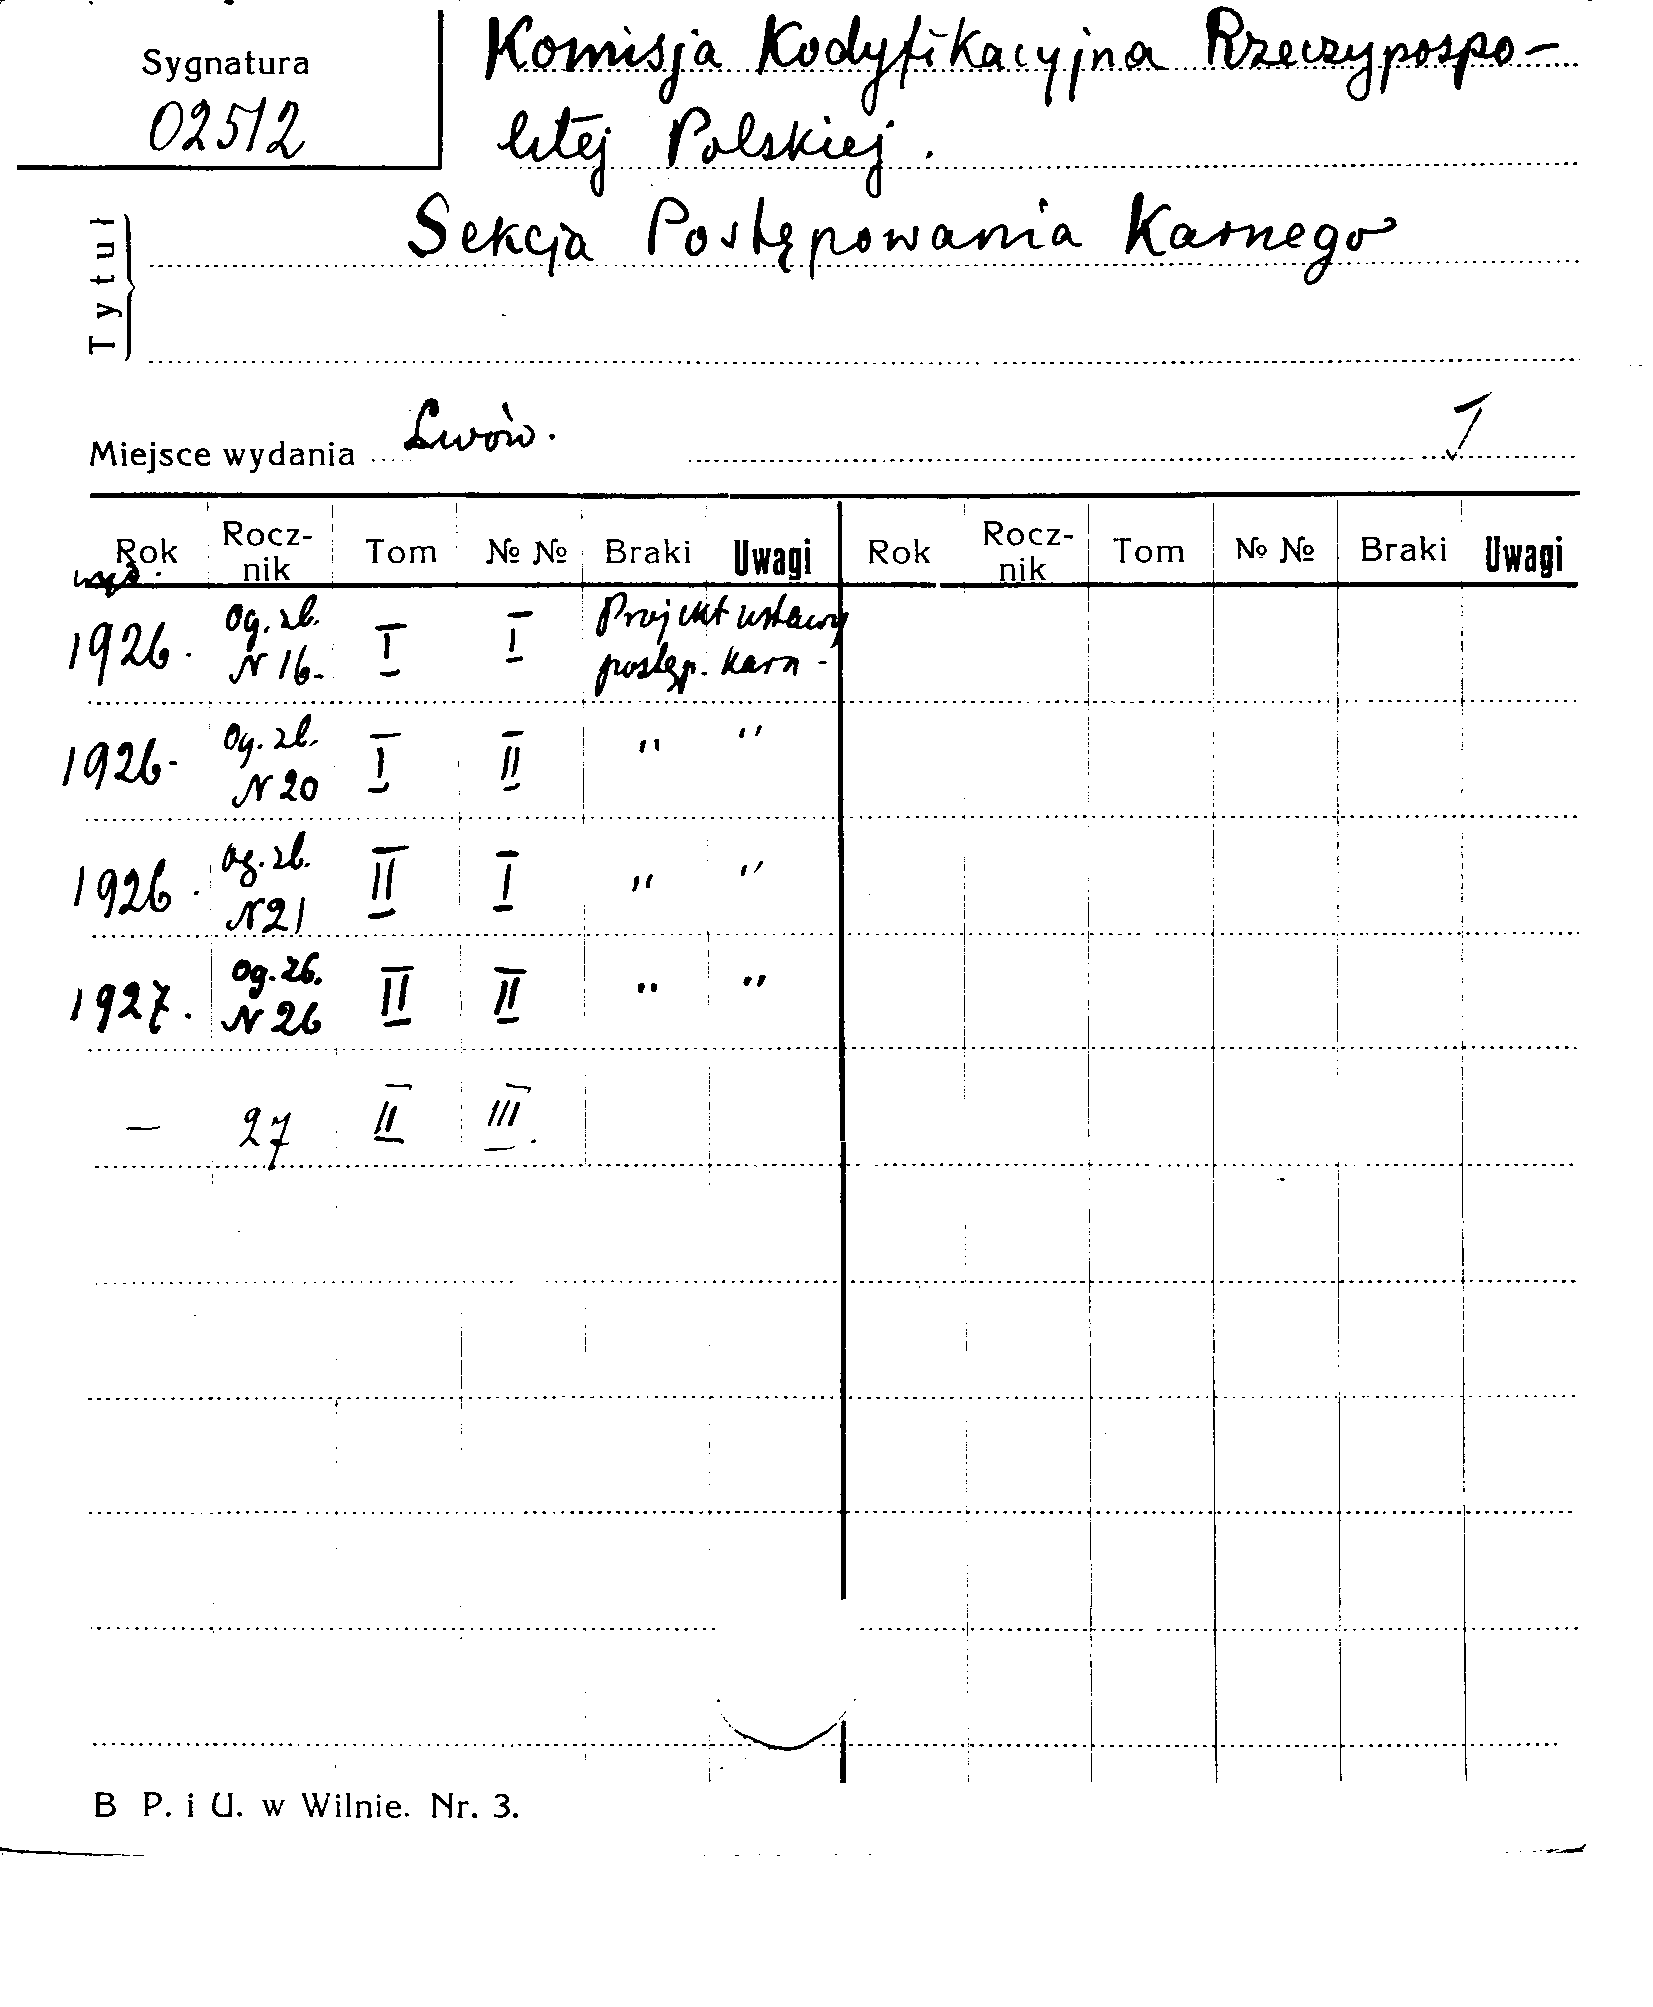 Sygnatura
02512
Komisja Kodyfikacyjna Rzeczypospo-
litej Polskiej.
Tytuł
Sekcja Postępowania Karnego
Miejsce wydania Lwów.
Rok Rocz-nik Tom № № Braki Uwagi Rok Rocz-nik Tom № № Braki Uwagi
wyd.
1926. Og. zb. N 16. I I Projekt ustawy postęp. karn-
1926- Og. zb. N 20 I II " "
1926. Og. zb. N 21 II I " "
1927. Og. zb. N 26 II II " "
— 27 II III.
B P. i U. w Wilnie. Nr. 3.